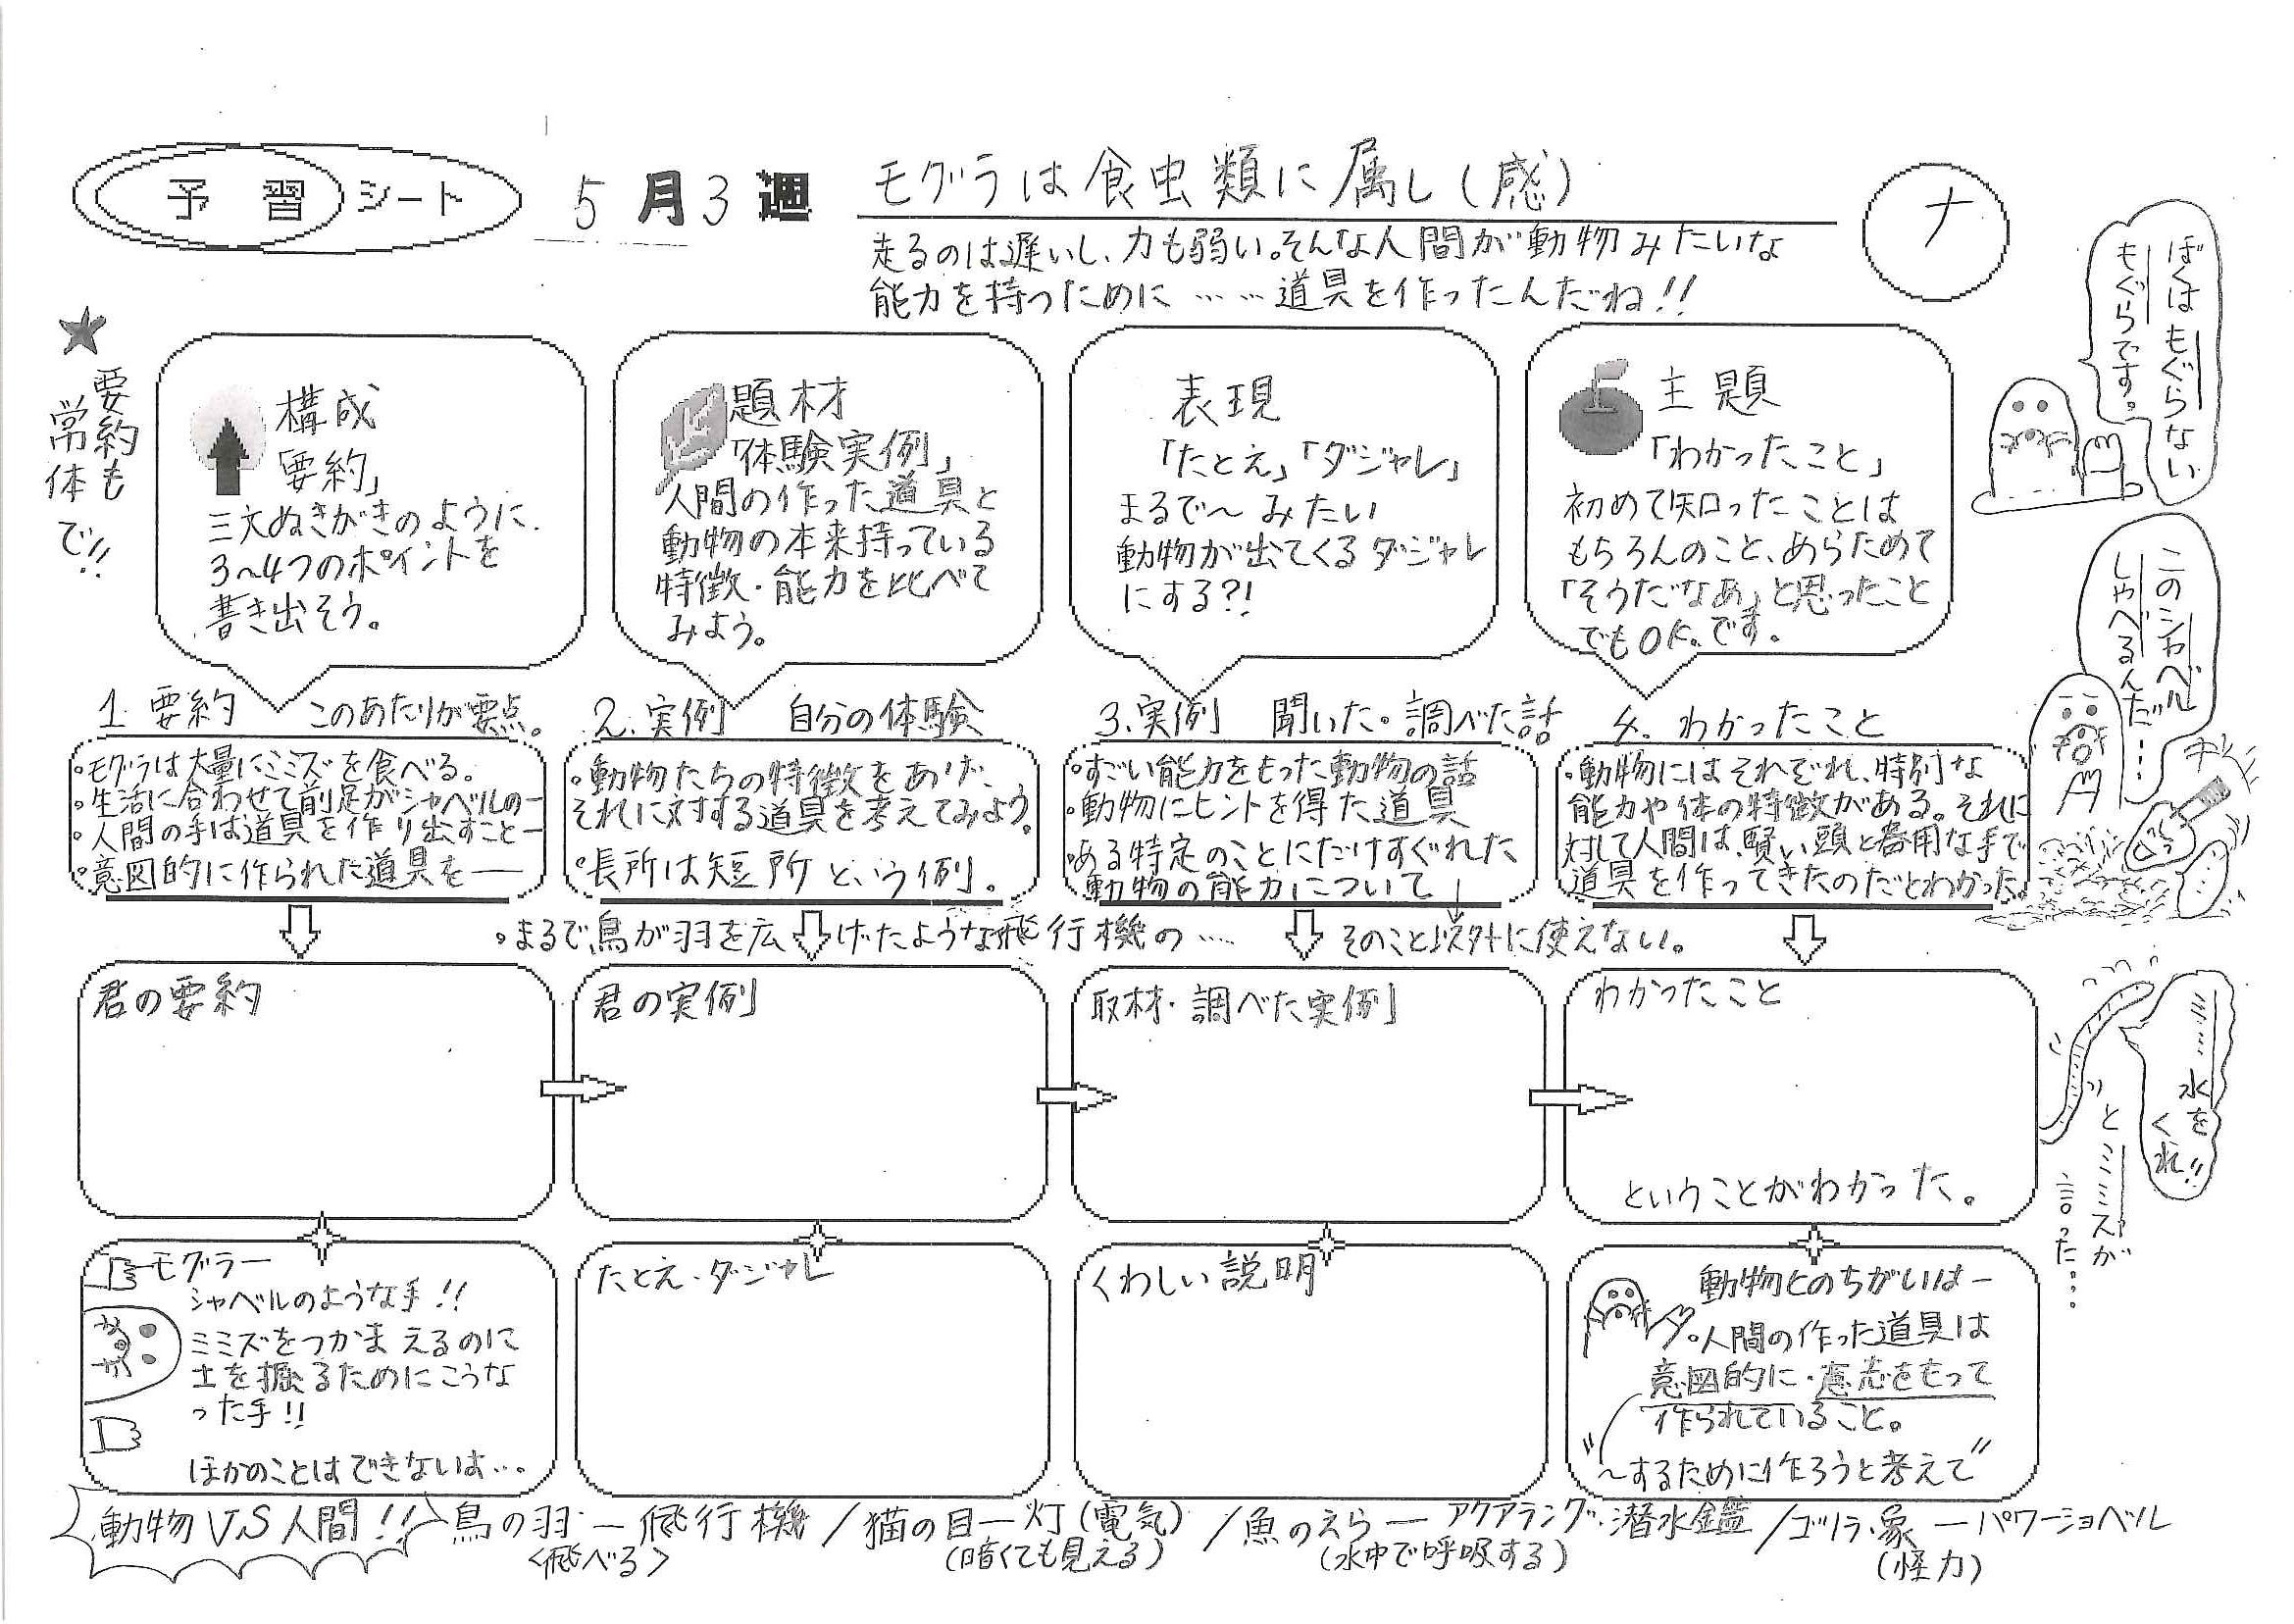 予習シート
5月3週
モグラは食虫類に属し(感)
ナ
走るのは遅いし、力も弱い。そんな人間が動物みたいな
能力を持つために……道具を作ったんだね!!
★要約も
常体
で!!
構成
「要約」
三文ぬきがきのように、
3~4つのポイントを
書き出そう。
題材
「体験実例」
人間の作った道具と
動物の本来持っている
特徴・能力を比べて
みよう。
表現
「たとえ」「ダジャレ」
まるで~みたい
動物が出てくるダジャレ
にする?!
主題
「わかったこと」
初めて知ったことは
もちろんのこと、あらためて
「そうだなあ」と思ったこと
でもOK。です。
ぼくはもぐらない
もぐらです。
このシャベル
しゃべるんだ…
1. 要約 このあたりが要点。
・モグラは大量にミミズを食べる。
・生活に合わせて前足がシャベルの―
・人間の手は道具を作り出すこと―
・意図的に作られた道具を――
2. 実例 自分の体験
・動物たちの特徴をあげ、
それに対する道具を考えてみよう。
・長所は短所という例。
3. 実例 聞いた・調べた話
・すごい能力をもった動物の話
・動物にヒントを得た道具
・ある特定のことにだけすぐれた
動物の能力について
4. わかったこと
・動物にはそれぞれ、特別な
能力や体の特徴がある。それに
対して人間は、賢い頭と器用な手で
道具を作ってきたのだとわかった。
・まるで鳥が羽を広げたような飛行機の……
そのこと以外に使えない。
君の要約
君の実例
取材・調べた実例
わかったこと
ということがわかった。
ミミ…水を
くれ!!
とミミズが
言った…
モグラ―
シャベルのような手!!
ミミズをつかまえるのに
土を掘るためにこうな
った手!!
ほかのことはできないは…。
たとえ・ダジャレ
くわしい説明
動物とのちがいは―
・人間の作った道具は
意図的に・意志をもって
作られていること。
"~するために作ろうと考えて"
動物VS人間!!
鳥の羽―飛行機/猫の目―灯(電気)/魚のえら―アクアラング・潜水鑑/ゴリラ・象―パワーショベル
<飛べる> (暗くても見える) (水中で呼吸する) (怪力)